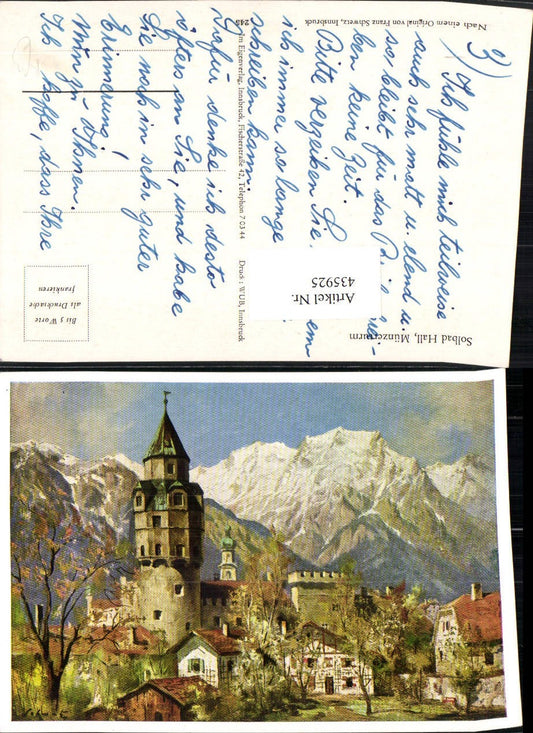 3)
Ich fühle mich teilweise
auch sehr matt u. elend u.
so bleibt für das
ben keine Zeit.
Bitte verzeihen Sie,
ich immer so lange
schreiben kann.
Dafür denke ich desto
öfters an Sie, und habe
Sie noch in sehr guter
Erinnerung,
Mizzi Ihnen.
Ich hoffe, dass Ihre
Solbad Hall, Münzerturm
Artikel Nr.
435925
Nach einem Original von Franz Schwetz, Innsbruck
248
Im Eigenverlag, Innsbruck, Fischerstraße 42, Telephon 7 03 44
Druck: WUB, Innsbruck
Bis 5 Worte
als Drucksache
frankieren